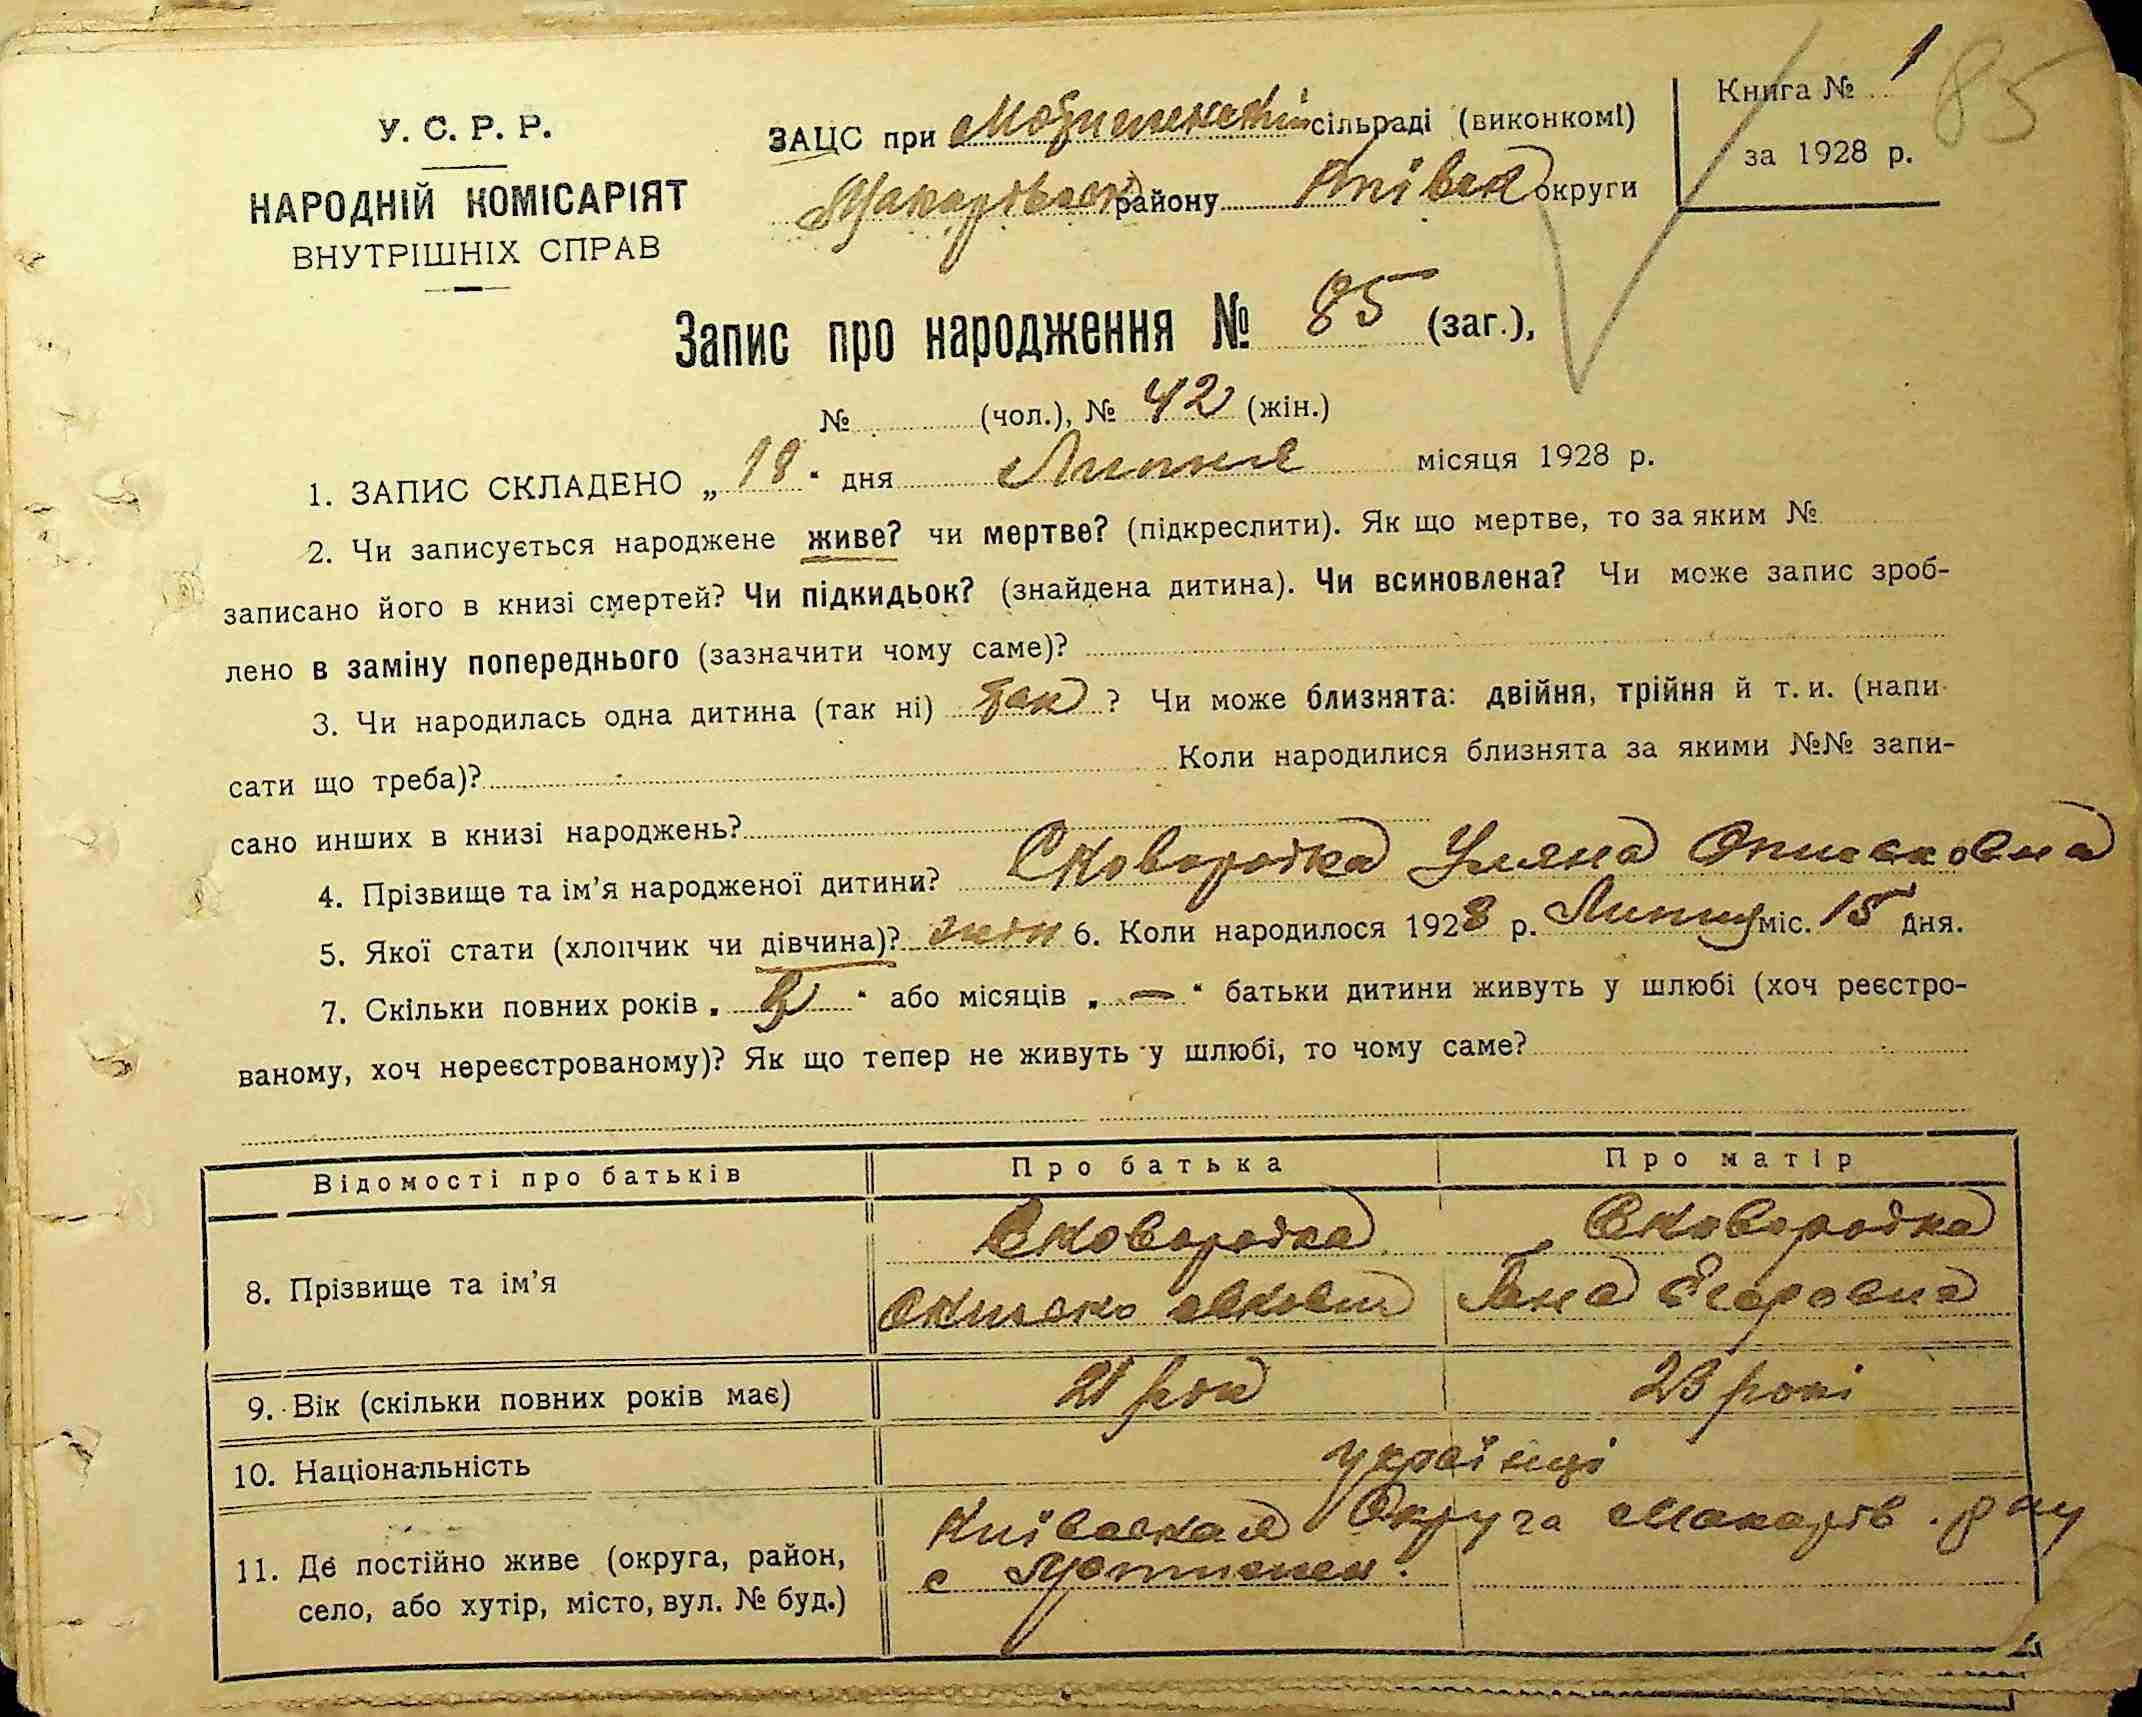 Книга № 1
85
У. С. Р. Р.
ЗАЦС при сільраді (виконкомі)
за 1928 р.
НАРОДНІЙ КОМІСАРІЯТ
району округи
ВНУТРІШНІХ СПРАВ
Запис про народження № 85 (заг.),
№ (чол.), № 42 (жін.)
1. ЗАПИС СКЛАДЕНО „ 18 “ дня Липня місяця 1928 р.
2. Чи записується народжене живе? чи мертве? (підкреслити). Як що мертве, то за яким №
записано його в книзі смертей? Чи підкидьок? (знайдена дитина). Чи всиновлена? Чи може запис зроб-
лено в заміну попереднього (зазначити чому саме)?
3. Чи народилась одна дитина (так ні) так ? Чи може близнята: двійня, трійня й т. и. (напи-
сати що треба)? Коли народилися близнята за якими №№ запи-
сано инших в книзі народжень?
4. Прізвище та ім’я народженої дитини? Сковородка Уляна
5. Якої стати (хлопчик чи дівчина)? жін 6. Коли народилося 1928 р. Липня міс. 15 дня.
7. Скільки повних років „ “ або місяців „ — “ батьки дитини живуть у шлюбі (хоч реєстро-
ваному, хоч нереєстрованому)? Як що тепер не живуть у шлюбі, то чому саме?
Відомості про батьків Про батька Про матір
8. Прізвище та ім’я Сковородка Сковородка
Егоровна
9. Вік (скільки повних років має) 21 рок 23 рокі
10. Національність українці
11. Де постійно живе (округа, район,
село, або хутір, місто, вул. № буд.)
Київская Округа Макарів. р-ну
с